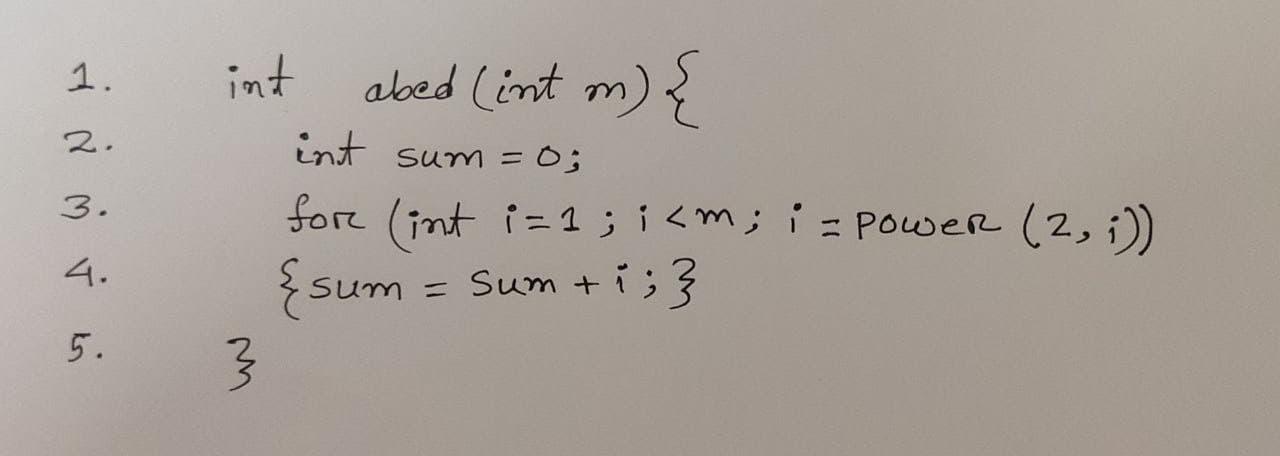 1. int abcd (int m) {
2. int sum = 0;
3. for (int i = 1 ; i < m ; i = power (2, i))
4. { sum = sum + i ; }
5. }